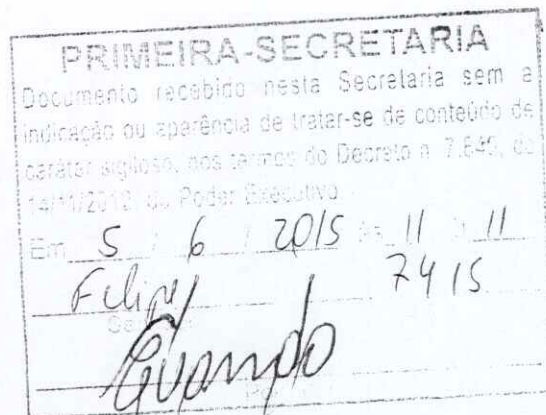 PRIMEIRA-SECRETARIA
Documento recebido nesta Secretaria sem a
indicação ou aparência de tratar-se de conteúdo de
caráter sigiloso, nos termos do Decreto n. 7.845, de
14/11/2012, do Poder Executivo.
Em 5 / 6 / 2015 às 11 h 11
Felipe 7415